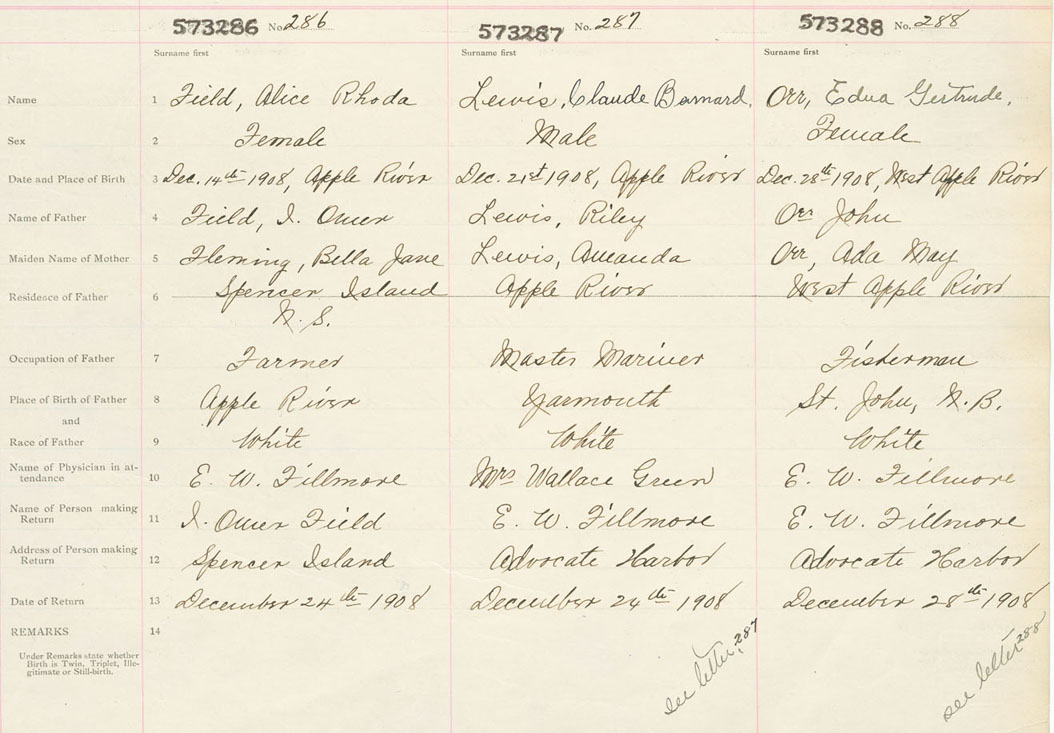 573286 No. 286 573287 No. 287 573288 No. 288
Surname first Surname first Surname first
Name 1 Field, Alice Rhoda Lewis, Claude Barnard, Orr, Edna Gertrude,
Sex 2 Female Male Female
Date and Place of Birth 3 Dec. 14th 1908, Apple River Dec. 21st 1908, Apple River Dec. 28th 1908, West Apple River
Name of Father 4 Field, I. Omer Lewis, Riley Orr John
Maiden Name of Mother 5 Fleming, Bella Jane Lewis, Amanda Orr, Ada May
Residence of Father 6 Spencer Island Apple River West Apple River
N. S.
Occupation of Father 7 Farmer Master Mariner Fisherman
Place of Birth of Father 8 Apple River Yarmouth St. John, N.B.
and
Race of Father 9 White White White
Name of Physician in at-
tendance 10 E. W. Fillmore Mrs Wallace Green E. W. Fillmore
Name of Person making
Return 11 I. Omer Field E. W. Fillmore E. W. Fillmore
Address of Person making
Return 12 Spencer Island Advocate Harbor Advocate Harbor
Date of Return 13 December 24th 1908 December 24th 1908 December 28th 1908
REMARKS 14
Under Remarks state whether
Birth is Twin, Triplet, Ille-
gitimate or Still-birth.
see letter 287 see letter 288